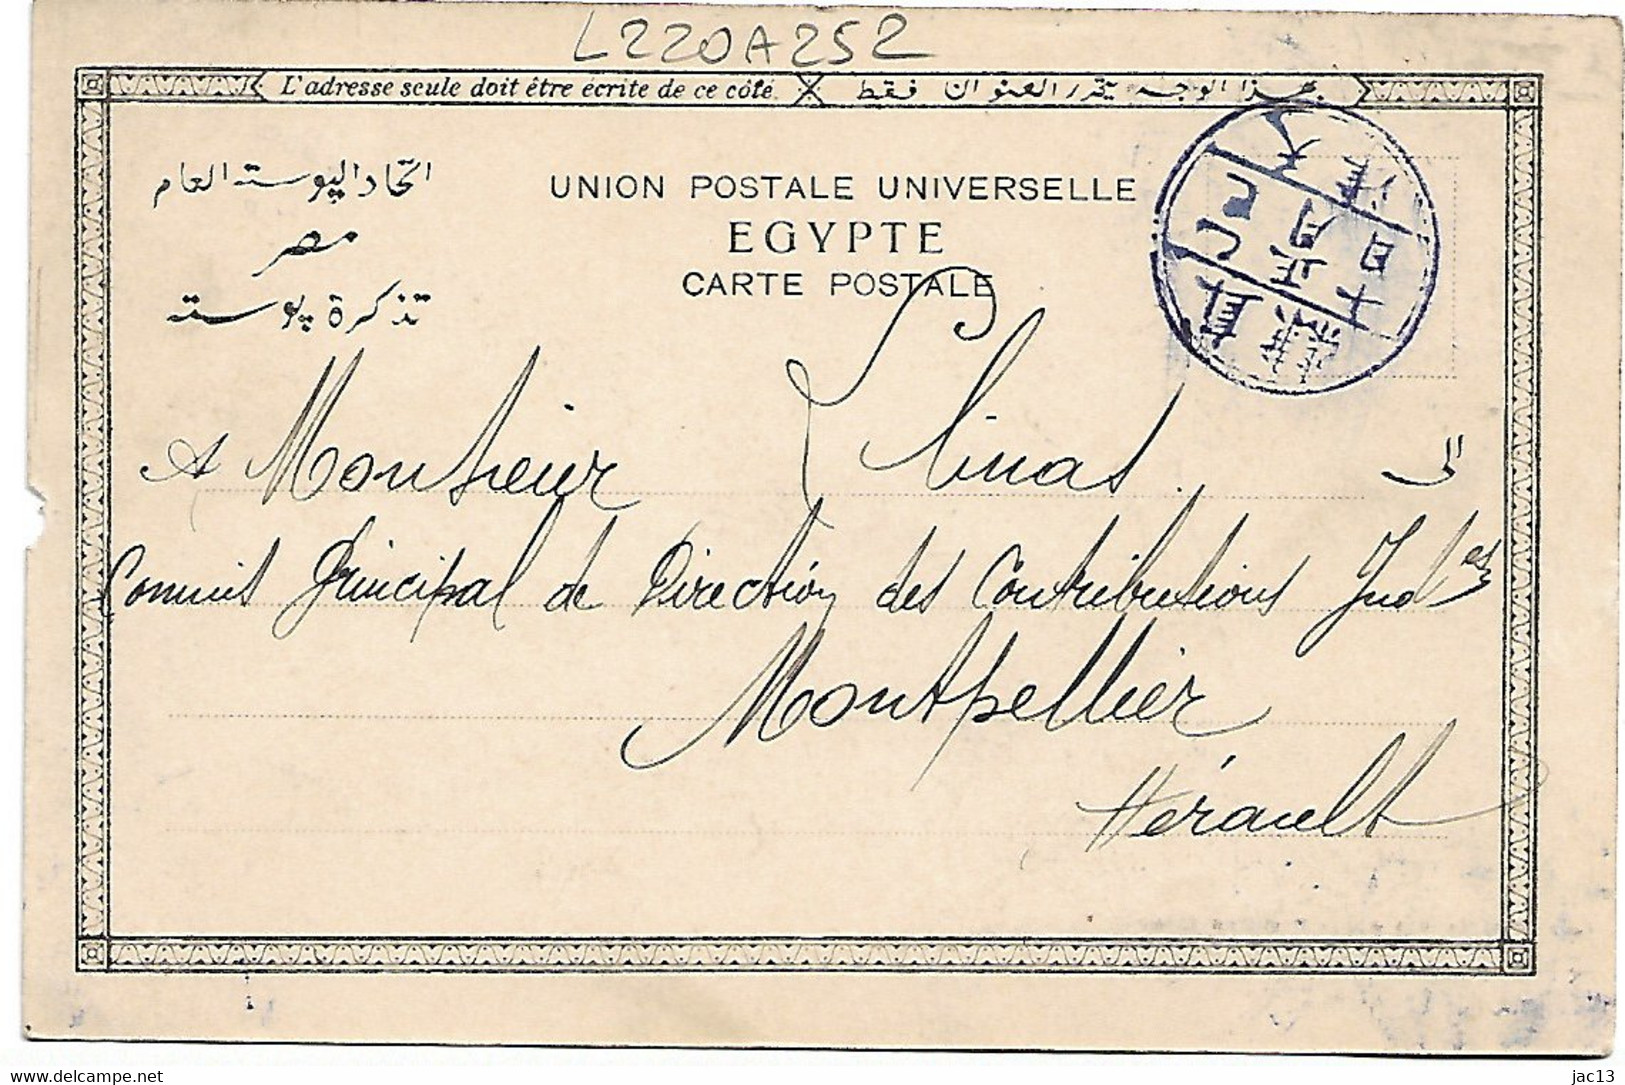 L220A252
L'adresse seule doit être écrite de ce côté. بهذا الوجه يحرر العنوان فقط
اتحاد البوسته العام
مصر
تذكرة بوسته
UNION POSTALE UNIVERSELLE
EGYPTE
CARTE POSTALE
A Monsieur Linas
الى
Commis Principal de Direction des Contributions Ind^es
Montpellier
Hérault
delcampe.net
jac13